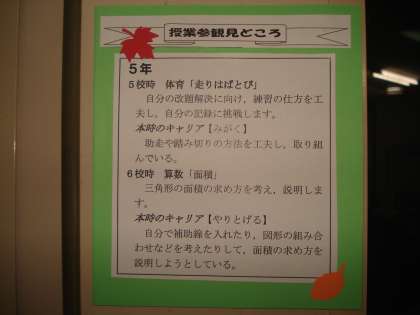 授業参観見どころ
5年
5校時　体育「走りはばとび」
自分の改題解決に向け，練習の仕方を工
夫し，自分の記録に挑戦します。
本時のキャリア【みがく】
助走や踏み切りの方法を工夫し，取り組
んでいる。
6校時　算数「面積」
三角形の面積の求め方を考え，説明しま
す。
本時のキャリア【やりとげる】
自分で補助線を入れたり，図形の組み合
わせなどを考えたりして，面積の求め方を
説明しようとしている。